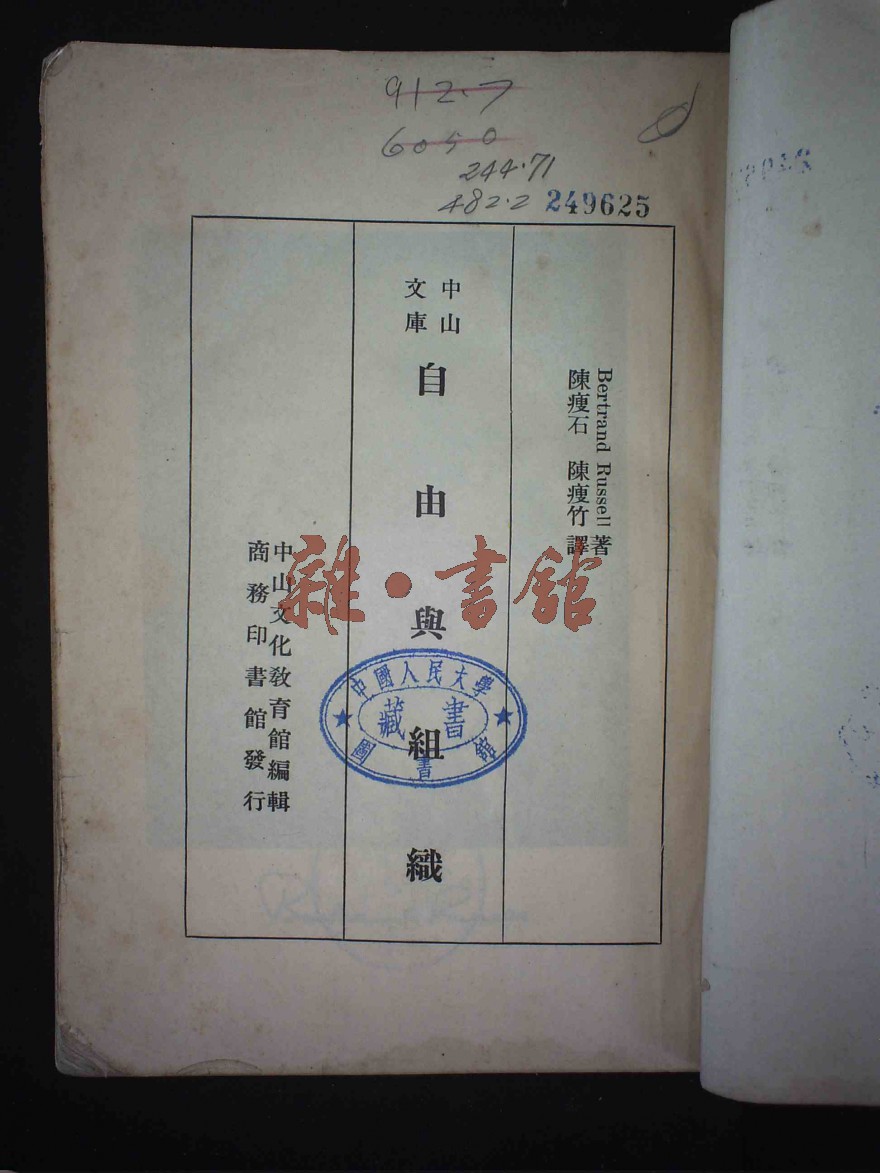 912.7
6050
244.71
482.2 249625
Bertrand Russell 著
陳瘦石 陳瘦竹 譯
中山
文庫
自由與組織
中山文化教育館編輯
商務印書館發行
雜·書館
中國人民大學
藏書
圖書館